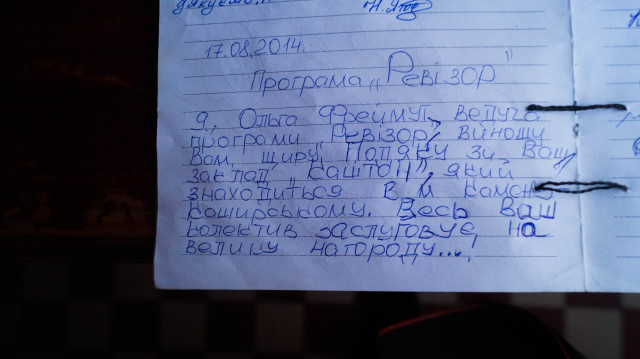 дякуємо
17.08.2014.
Програма „Ревізор"
Я, Ольга Фреймут, ведуча
програми „Ревізор", виношу
Вам, щиру, Подяку за Ваш
заклад „Каштон", який
знаходиться в м Камсну
Каширському. Весь Ваш
колектив заслуговує, на
велику нагороду...,